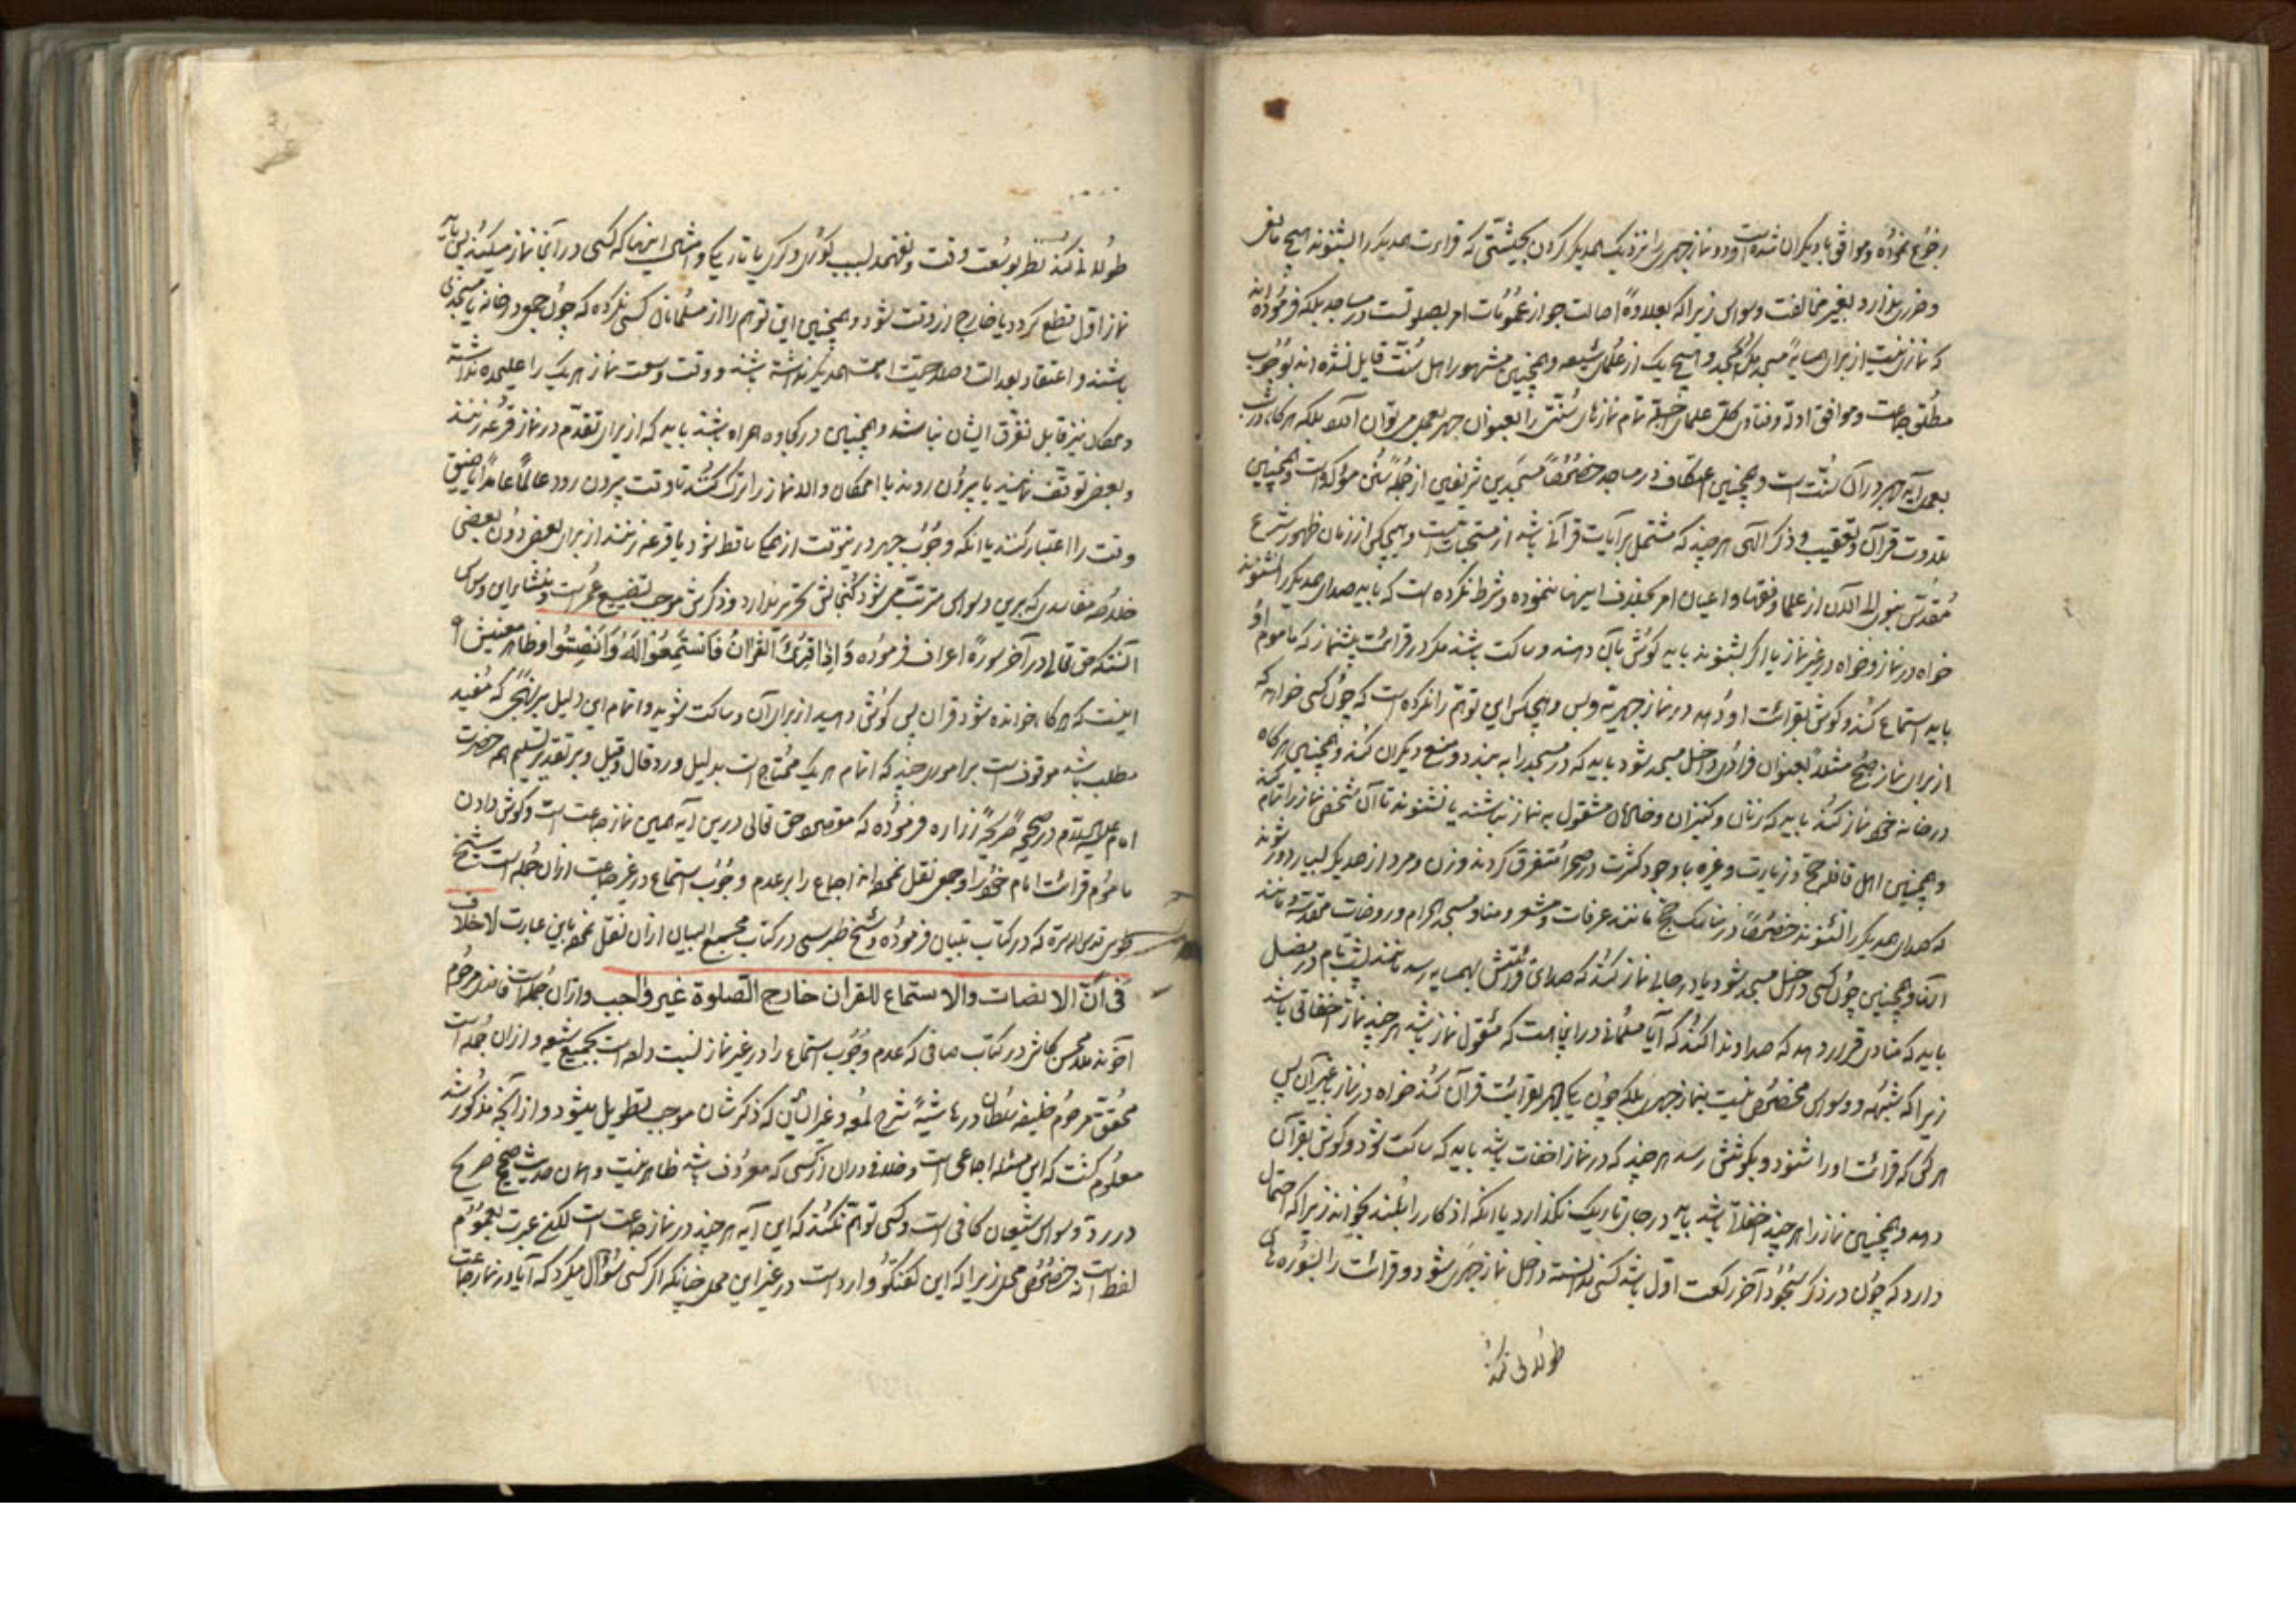 رجوع نموده و موافق با دیگران شده است و دو نماز جهری را نزدیک همدیگر کردن بحیثیتی که قرائت همدیگر را بشنوند هیچ مانعی
و ضرری ندارد بغیر مخالفت وسواس زیرا که بعلاوه اصالت جواز عمومات امر بصلوتست در مساجد بلکه فرموده‌اند
که نماز نیست از برای همسایه مسجد مگر در مسجد و هیچ یک از علمای شیعه و همچنین مشهور اهل سنت قایل نشده‌اند بوجوب
مطلق جماعت و موافق ادله و فتاوی کل علما تمام نمازهای سنتی را بعنوان جهر بعمل میتوان آورد بلکه هر کاه در شب
بعمل آید جهر در آن سنت است و همچنین اعتکاف در مساجد خصوصا مسجدین شریفین از جمله سنن مؤکده است و همچنین
تلاوت قرآن و تعقیب و ذکر الهی هر چند که مشتمل بر آیات قرآنی باشد از مستحباتست و هیچکس از زمان ظهور شرع
مقدس نبوی الی الآن از علما و فقها و اعیان امر بخلاف اینها ننموده و شرط نکرده است که باید صدای همدیگر را نشنوند
خواه در نماز و خواه در غیر نماز یا اگر بشنوند باید کوش بآن دهند و ساکت باشند مگر در قرائت پیشنماز که ماموم او
باید استماع کند و کوش بقرائت او دهد در نماز جهریه و بس و هیچکس این توهم را نکرده است که چون کسی خواهد که
از برای نماز صبح مثلا بعنوان فرادی داخل مسجد شود باید که در مسجد را به بندد و منع دیگران کند و همچنین هر کاه
در خانه خود نماز کند باید که زنان و کنیزان و خادمان مشغول به نماز نباشند یا نشنوند تا آن شخص نماز را تمام کند
و همچنین اهل قافله حج و زیارت و غیره با وجود کثرت در صحرا متفرق کردند و زن و مرد از همدیگر بسیار دور شوند
که صدای همدیگر را نشنوند خصوصا در مناسک حج مانند عرفات و مشعر و منا و مسجد الحرام و روضات مقدسه و مانند
آنها و همچنین چون کسی داخل مسجد شود یا در جائی نماز کند که صدای قرائتش بهمسایه رسد مانند پشت بام در فصل
باید که منادی قرار دهد که صدا و ندا کند که آیا مسلمانی در اینجا هست که مشغول نماز باشد هر چند نماز اخفاتی باشد
زیرا که شبهه و وسواس مخصوص نیست بنماز جهری بلکه چون یکی جهر بقرائت قرآن کند خواه در نماز یا غیر آن پس
هر کس که قرائت او را شنود و بکوشش رسد هر چند که در نماز اخفات باشد باید که ساکت شود و کوش بقرآن
دهد و همچنین نماز را هر چند اخفاتا باشد باید در جای تاریک نگذارد یا آنکه اذکار را بلند بخواند زیرا که احتمال
دارد که چون در ذکر سجود آخر رکعت اول باشد کسی ندانسته داخل نماز جهری شود و قرائت را بسوره‌های
طولانی کند
طولانی کند نظر بوسعت وقت و نفهمد بسبب کوری و کری یا تاریکی و امثال اینها که کسی در آنجا نماز میکند پس باید
نماز اول قطع کردد یا خارج از وقت شود و همچنین این توهم را از مسلمانان کسی نکرده که چون جمعی در خانه یا مسجدی
باشند و اعتقاد بعدالت و صلاحیت امامت همدیگر نداشته باشند و وقت وسعت نماز هر یک را علیحده نداشته
و مکان نیز قابل تفرق ایشان نباشد و همچنین در کجاوه همراه باشند باید که از برای تقدم در نماز قرعه زنند
و بعضی توقف نمایند یا بیرون روند با امکان و الا نماز را ترک کنند تا وقت بیرون رود عالما عامدا یا ضیق
وقت را اعتبار کنند یا آنکه وجوب جهر در اینوقت از همه ساقط شود یا قرعه زنند از برای بعضی دون بعضی
خلاصه مفاسدی که برین وسواس مترتب می شود کنجایش تحریر ندارد و ذکرش موجب تضییع عمر است و منشاء این وسواس
آنستکه حق تعالی در آخر سوره اعراف فرموده وَاِذا قُرِئَ القُرانُ فَاسْتَمِعُوا لَهُ وَاَنْصِتُوا و ظاهر معنیش
اینست که هر کاه خوانده شود قران پس کوش دهید از برای آن و ساکت شوید و اتمام این دلیل بر نهجی که مفید
مطلب باشد موقوف است بر امور چند که اتمام هر یک محتاج است بدلیل و رد قال و قیل و بر تقدیر تسلیم هم حضرت
امام علیه السلام در صحیحه صریحه زراره فرموده که مقصود حق تعالی درین آیه همین نماز جماعت است و کوش دادن
ماموم قرائت امام خود را و جمعی نقل نموده‌اند اجماع را بر عدم وجوب استماع در غیر جماعت از آن جمله است شیخ
طوسی قدس الله سره که در کتاب تبیان فرموده و شیخ طبرسی در کتاب مجمع البیان از آن نقل نموده باین عبارت لا خلاف
فی انّ الانصات والاستماع للقران خارج الصلوة غیر واجب و از آن جمله است فاضل مرحوم
آخوند ملا محسن کاشی در کتاب صافی که عدم وجوب استماع را در غیر نماز نسبت داده است بجمیع شیعه و از آن جمله است
محقق مرحوم خلیفه سلطان در حاشیه شرح لمعه و غیر ایشان که ذکرشان موجب تطویل میشود و از آنچه مذکور شد
معلوم کشت که این مسئله اجماعی است و خلافی در آن از کسی که معروف باشد ظاهر نیست و همان حدیث صحیح صریح
در رد وسواس شیعیان کافی است و کسی توهم نکند که این آیه هر چند در نماز جماعت است لکن عبرت بعموم
لفظ است نه خصوص محل زیرا که این کفتکو وارد است در غیر این محل چنانکه اگر کسی سؤال میکرد که آیا در نماز جماعت